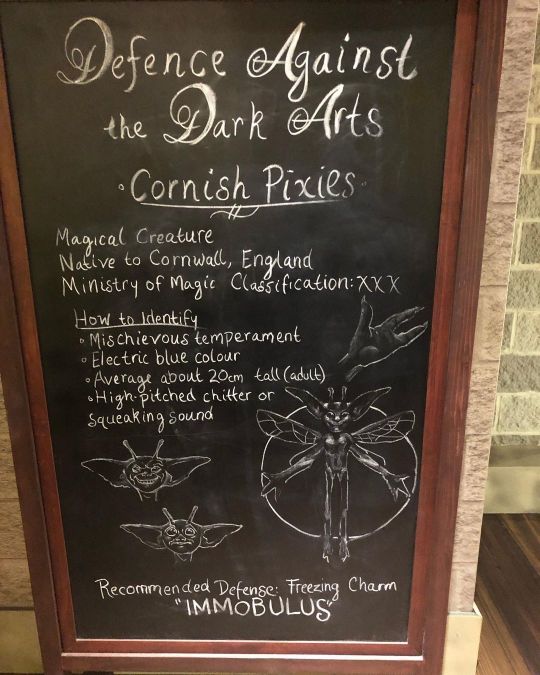 Defence Against
the Dark Arts
Cornish Pixies
Magical Creature
Native to Cornwall, England
Ministry of Magic Classification: XXX
How to Identify
◦ Mischievous temperament
◦ Electric blue colour
◦ Average about 20cm tall (adult)
◦ High-pitched chitter or
squeaking sound
Recommended Defense: Freezing Charm
"IMMOBULUS"